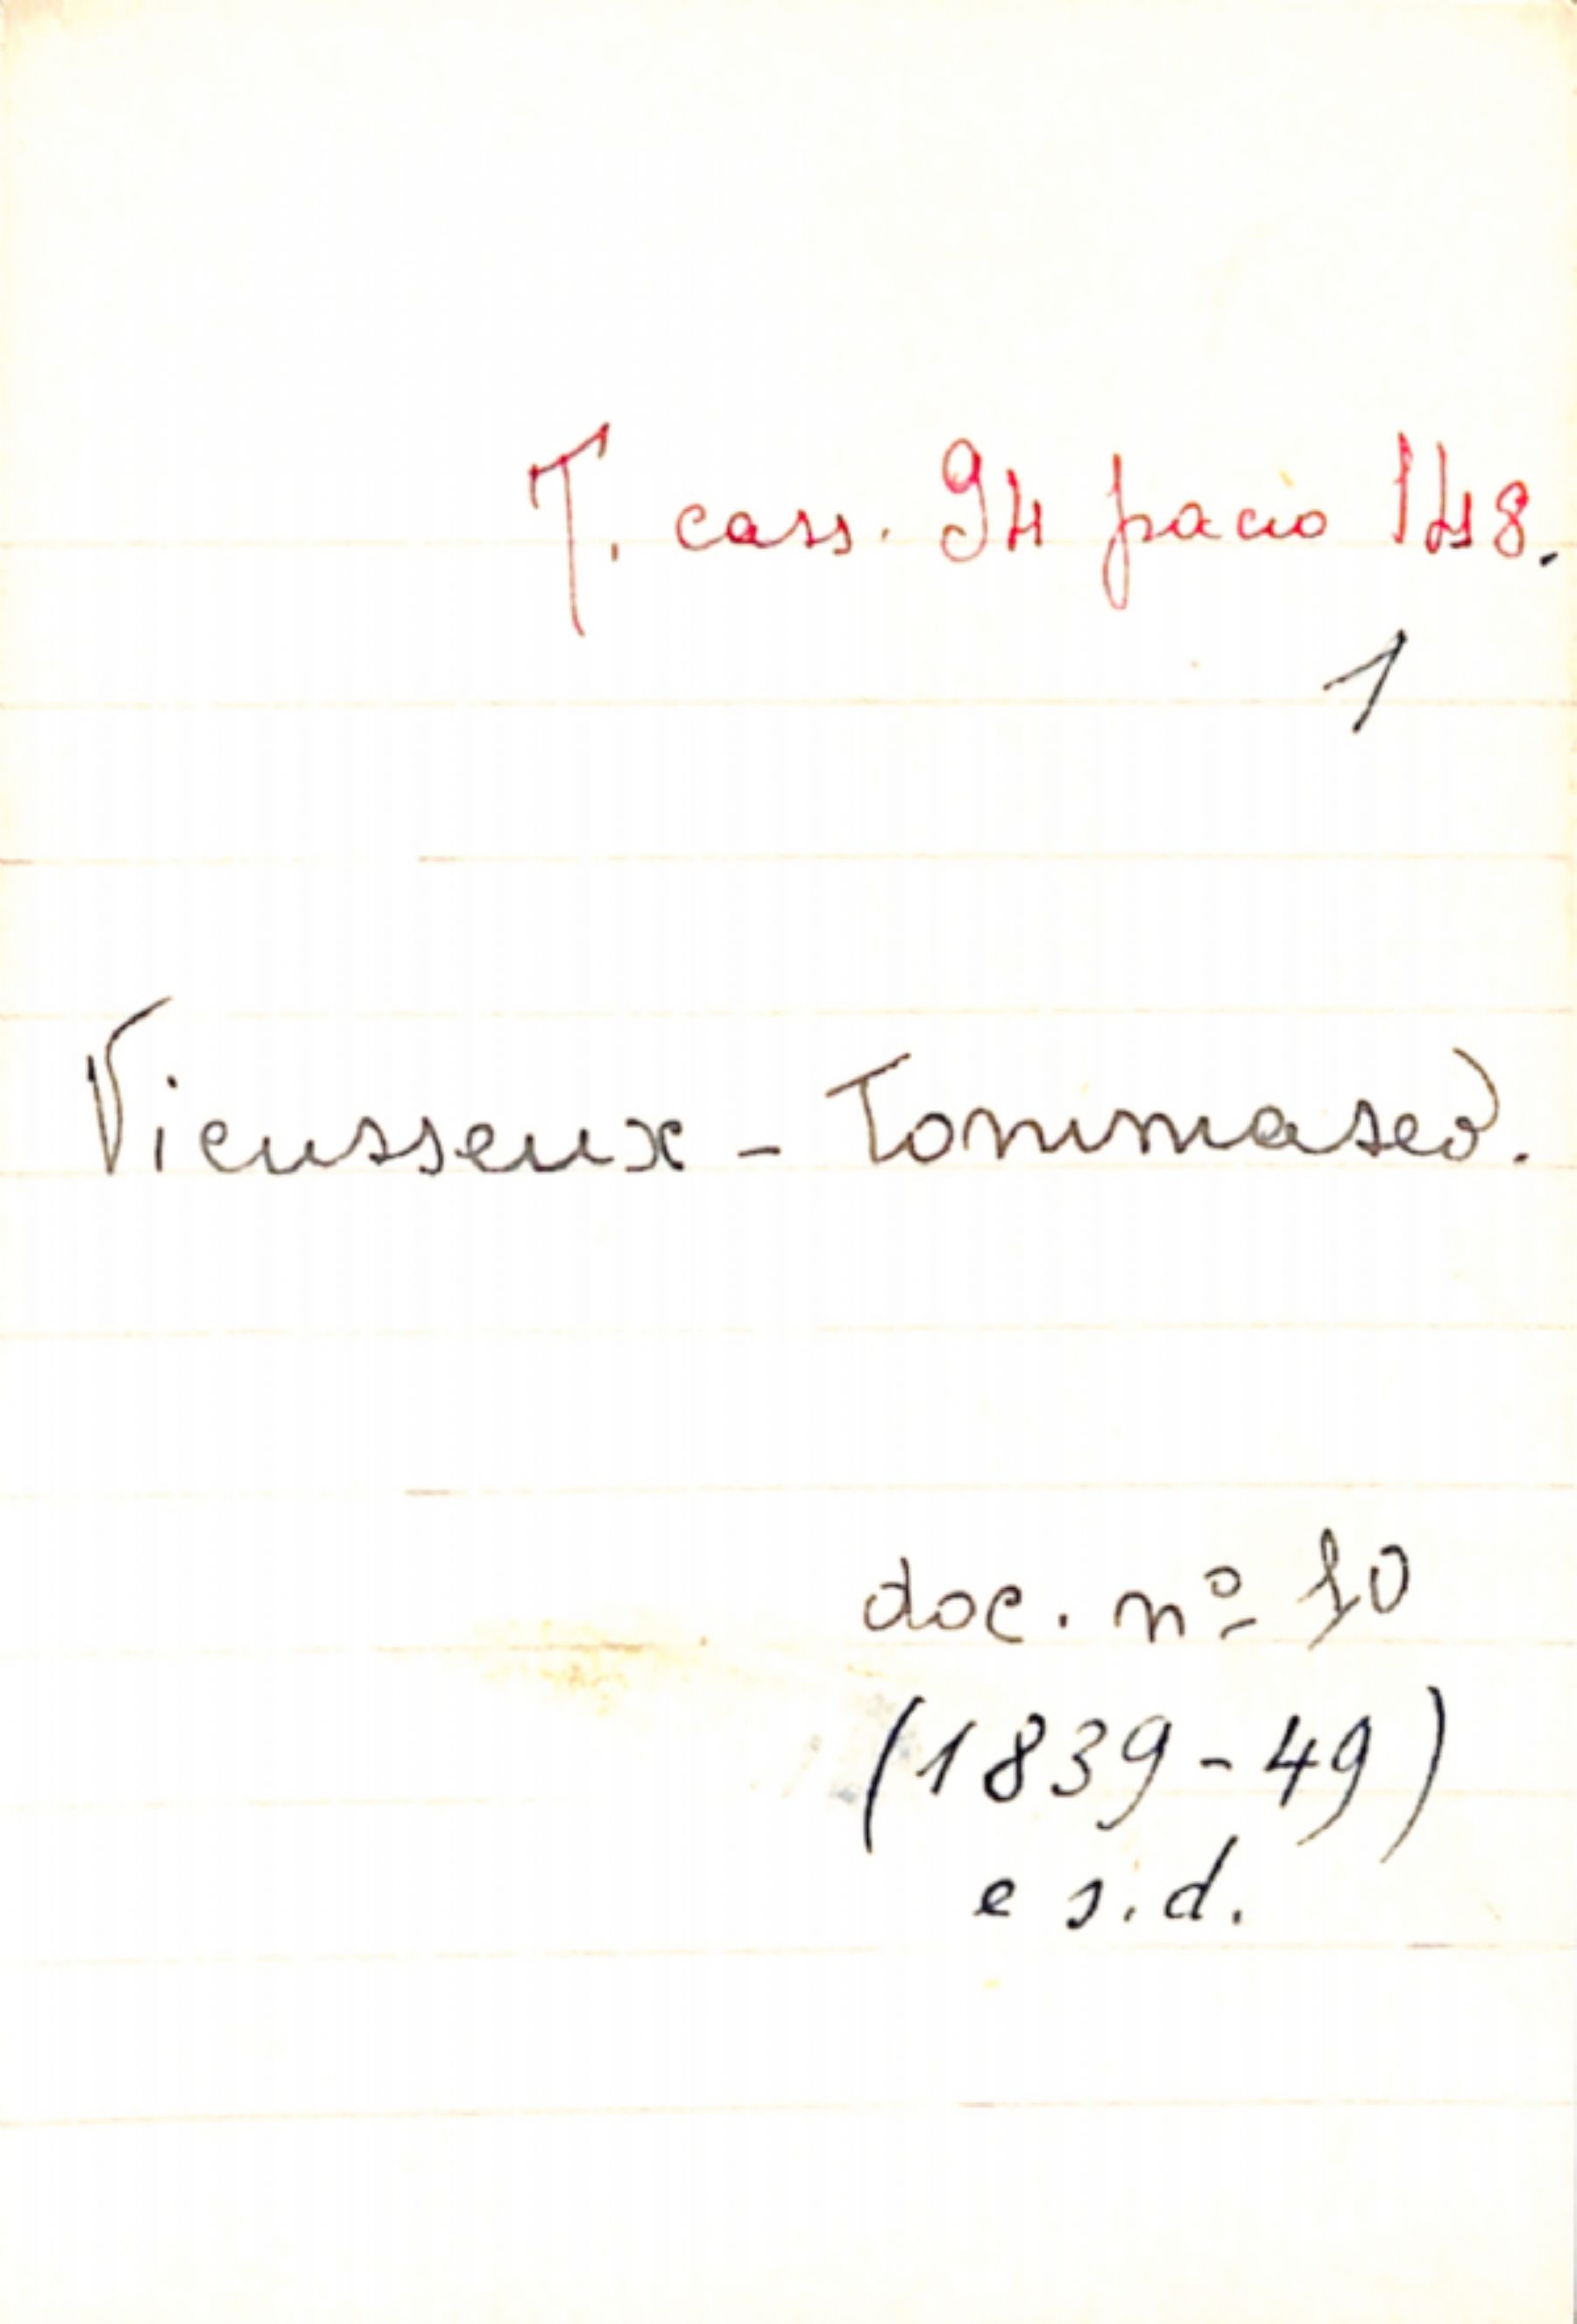 T. cass. 94 pacio 148.
1
Vieusseux - Tommaseo.
doc. nº 10
(1839-49)
e s.d.